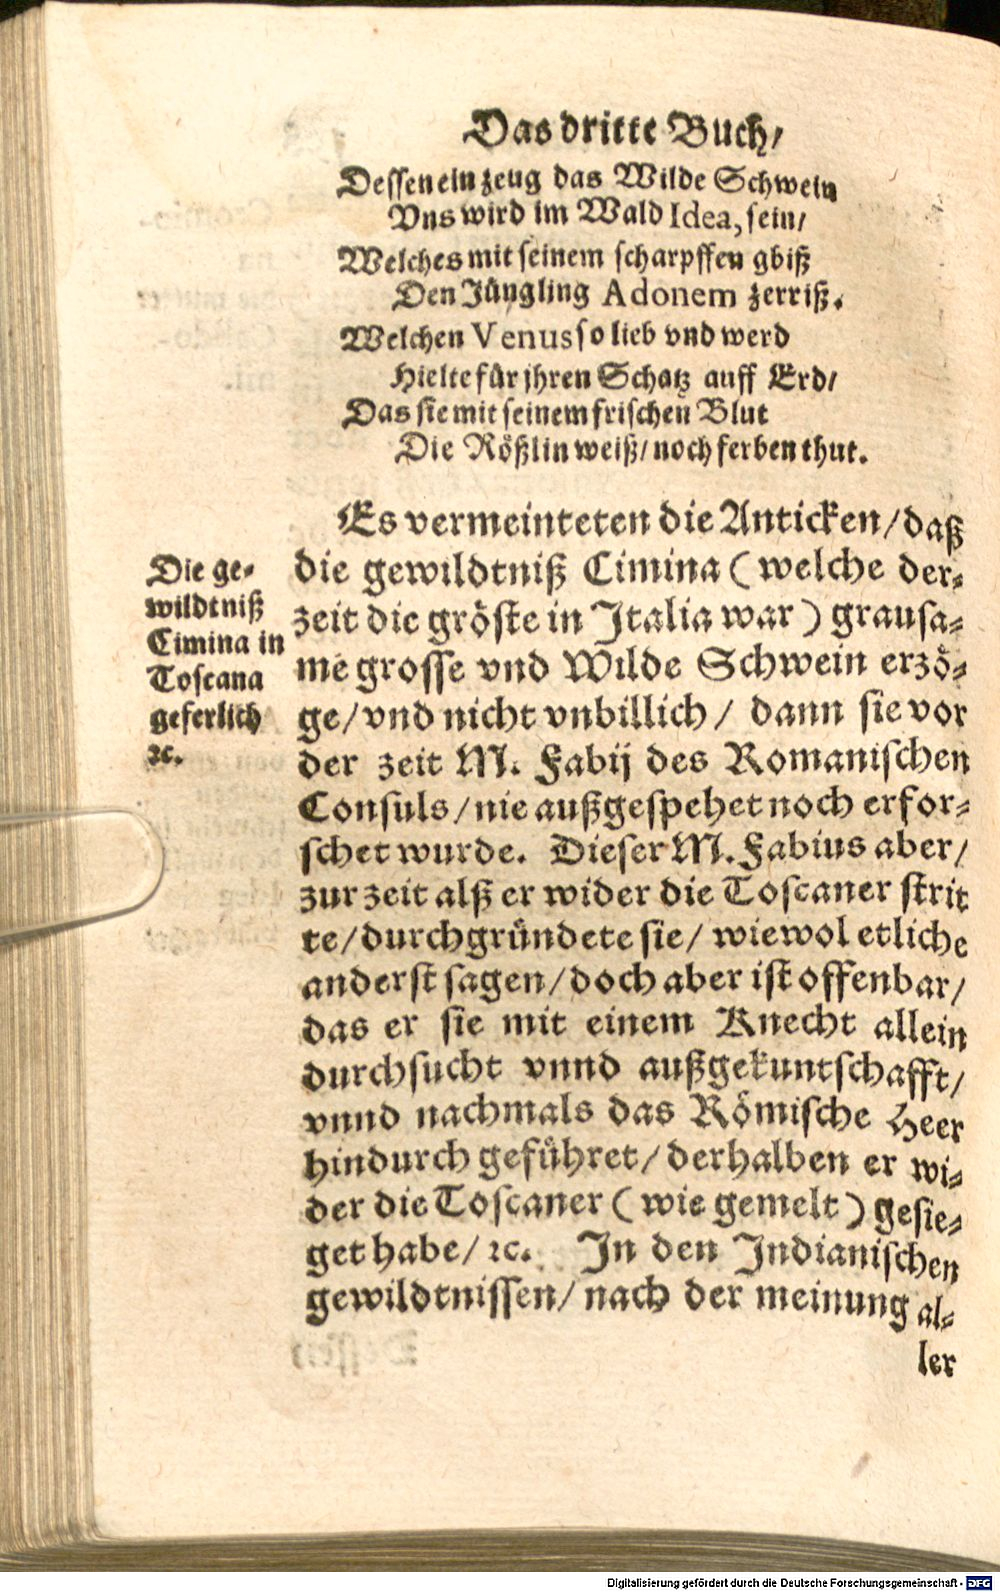 Das dritte Buch/
Dessen ein zeug das Wilde Schwein
Vns wird im Wald Idea, sein/
Welches mit seinem scharpffen gbiß
Den Jüngling Adonem zerriß.
Welchen Venus so lieb vnd werd
Hielte für jhren Schatz auff Erd/
Das sie mit seinem frischen Blut
Die Rößlin weiß/ noch ferben thut.
Es vermeinteten die Anticken/ daß
die gewildtniß Cimina ( welche der-
zeit die gröste in Italia war ) grausa-
me grosse vnd Wilde Schwein erzö-
ge/ vnd nicht vnbillich/ dann sie vor
der zeit M. Fabij des Romanischen
Consuls/ nie außgespehet noch erfor-
schet wurde. Dieser M. Fabius aber/
zur zeit alß er wider die Toscaner strit
te/ durchgründete sie/ wiewol etliche
anderst sagen/ doch aber ist offenbar/
das er sie mit einem Knecht allein
durchsucht vnnd außgekuntschafft/
vnnd nachmals das Römische Heer
hindurch geführet/ derhalben er wi-
der die Toscaner ( wie gemelt ) gesie-
get habe/ ꝛc. In den Indianischen
gewildtnissen/ nach der meinung al-
ler
Die ge-
wildtniß
Cimina in
Toscana
geferlich
ꝛc.
Digitalisierung gefördert durch die Deutsche Forschungsgemeinschaft - DFG